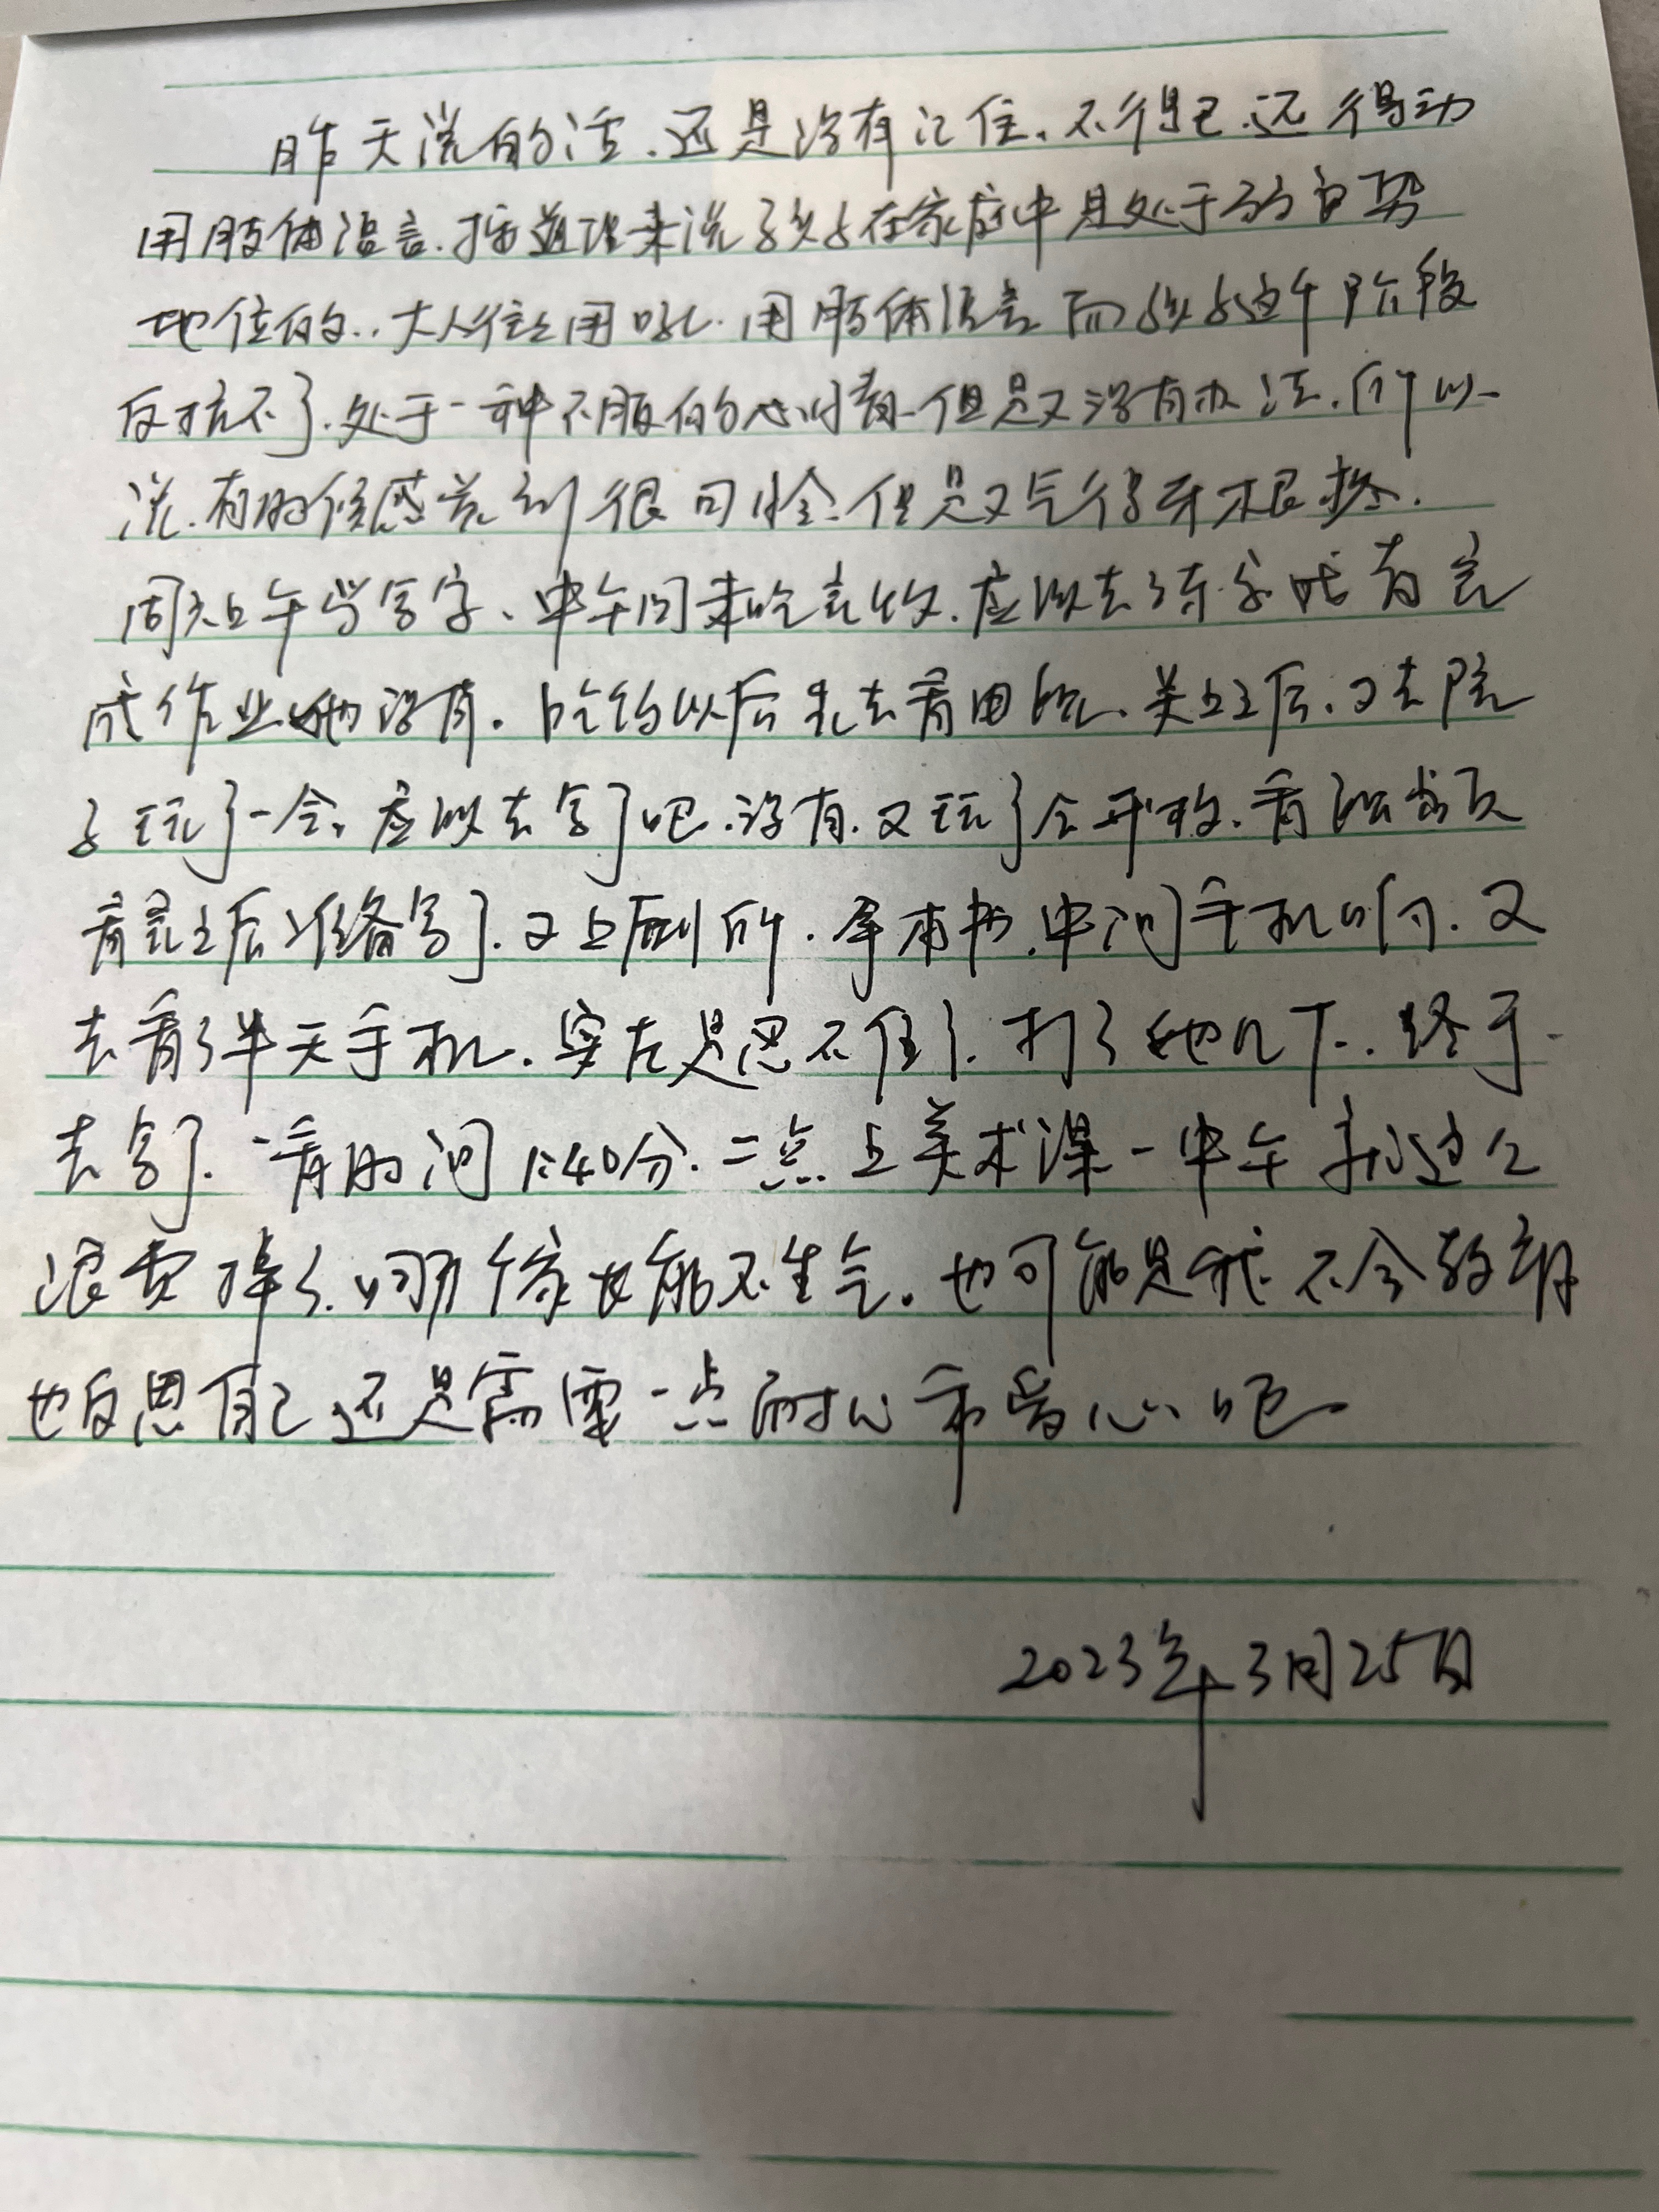 昨天说的话.还是没有记住.不得已.还得动
用肢体语言.按道理来说孩子在家庭中是处于弱势
地位的..大人往往用吼.用肢体语言而孩子这个阶段
反抗不了.处于一种不服的心情.但是又没有办法.所以
说.有时候感觉到很可怜.但是又气得牙根
周六上午学写字、中午回来吃完饭.应该去练字或者完
成作业她没有.吃饭以后先去看电视.关上之后.又去院
子玩了一会.应该去写了吧.没有.又玩了会.看
看完之后准备写了.又上厕所.拿本书.中间手机响.又
去看了半天手机.实在是忍不住了.打了她几下..终于
去写了.一看时间1:40分.二点上美术课一中午就这么
浪费掉了.哪个家长能不生气.也可能是我不会教育
也反思自己还是需要一点耐心和爱心吧
2023年3月25日